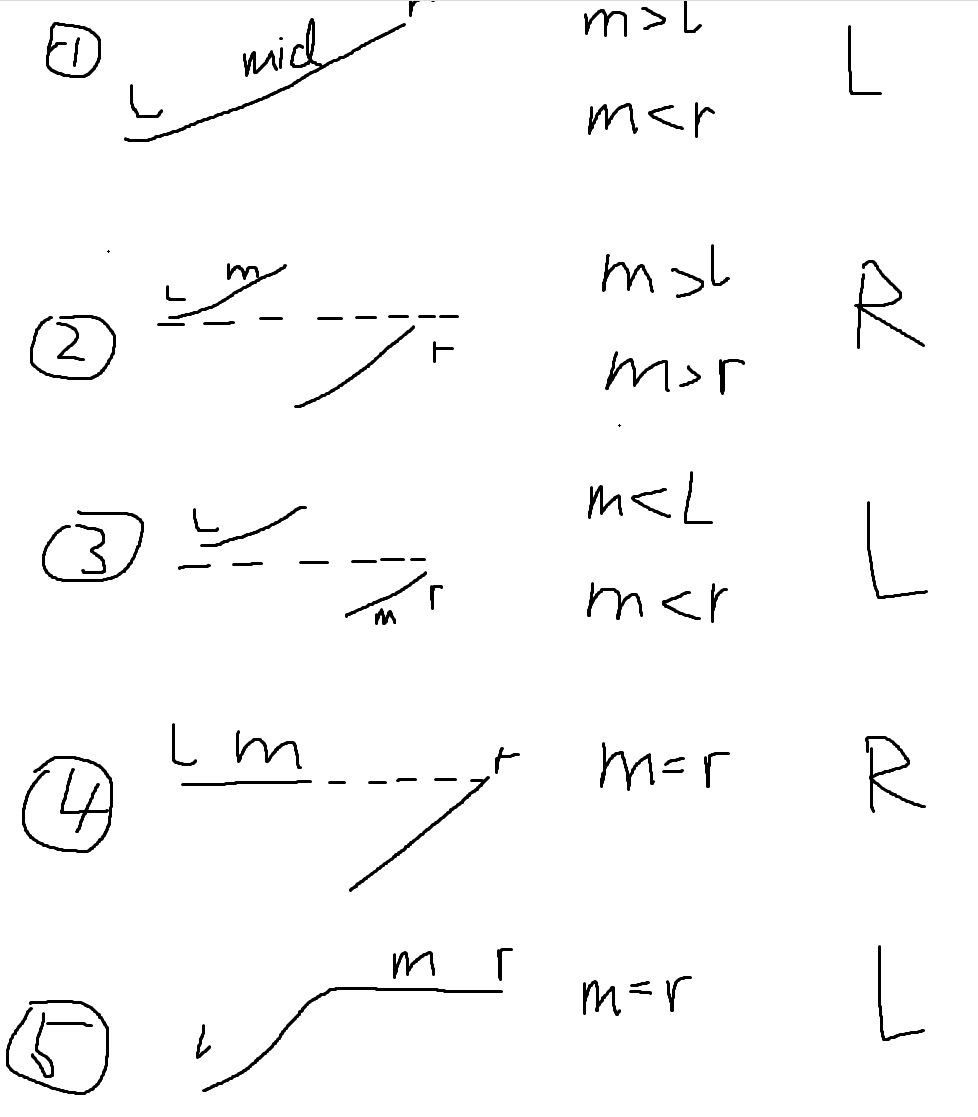 ① L mid r m>L L
m<r
② L m r m>L R
m>r
③ L m r m<L L
m<r
④ L m r m=r R
⑤ L m r m=r L